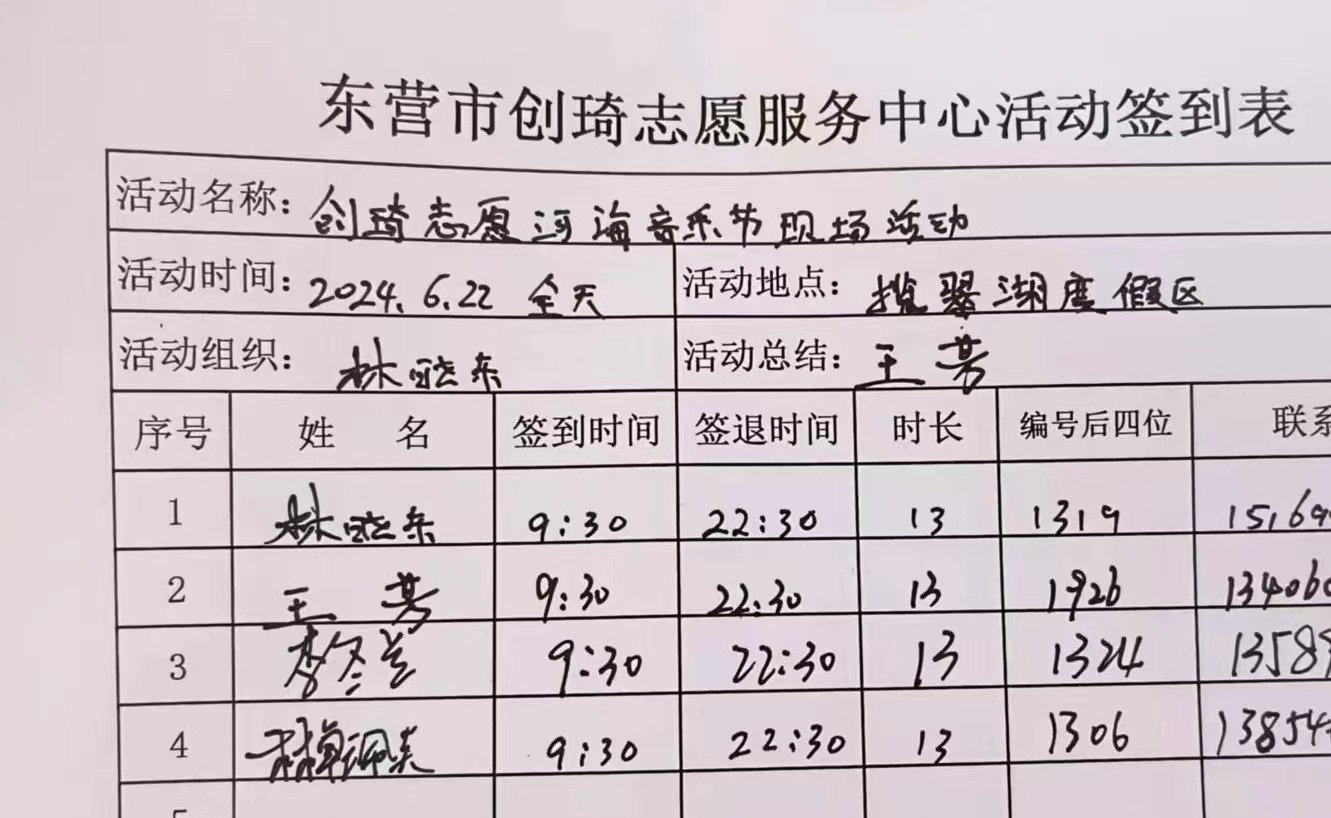 东营市创琦志愿服务中心活动签到表
活动名称: 创琦志愿河海音乐节现场活动
活动时间: 2024.6.22 全天 活动地点: 揽翠湖度假区
活动组织: 林晓东 活动总结: 王芳
序号 姓 名 签到时间 签退时间 时长 编号后四位 联系
1 林晓东 9:30 22:30 13 1319 15169
2 王芳 9:30 22:30 13 1926 134060
3 9:30 22:30 13 1324 13589
4 9:30 22:30 13 1306 13854